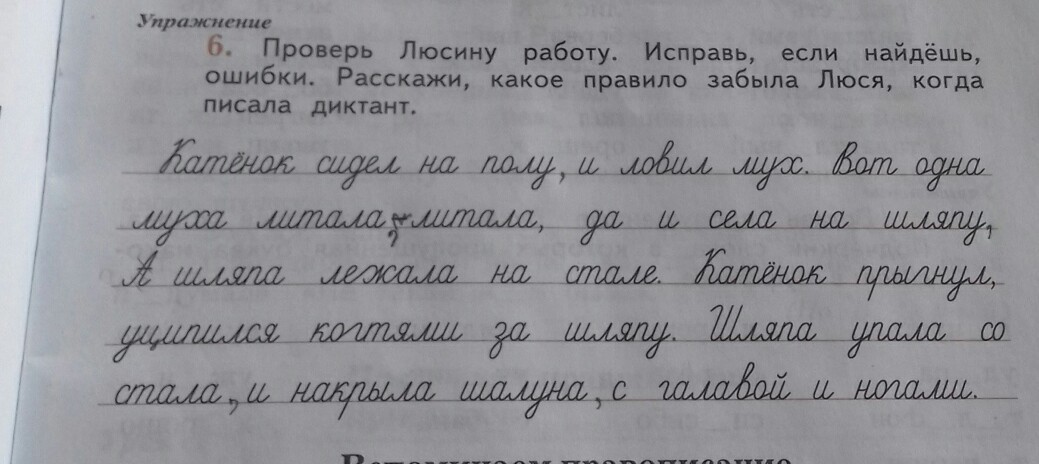 Упражнение
6. Проверь Люсину работу. Исправь, если найдёшь,
ошибки. Расскажи, какое правило забыла Люся, когда
писала диктант.
Катёнок сидел на полу, и ловил мух. Вот одна
муха литала, литала, да и села на шляпу,
А шляпа лежала на стале. Катёнок прыгнул,
уципился когтями за шляпу. Шляпа упала со
стала, и накрыла шалуна, с галавой и ногами.
Вспоминаем правописание